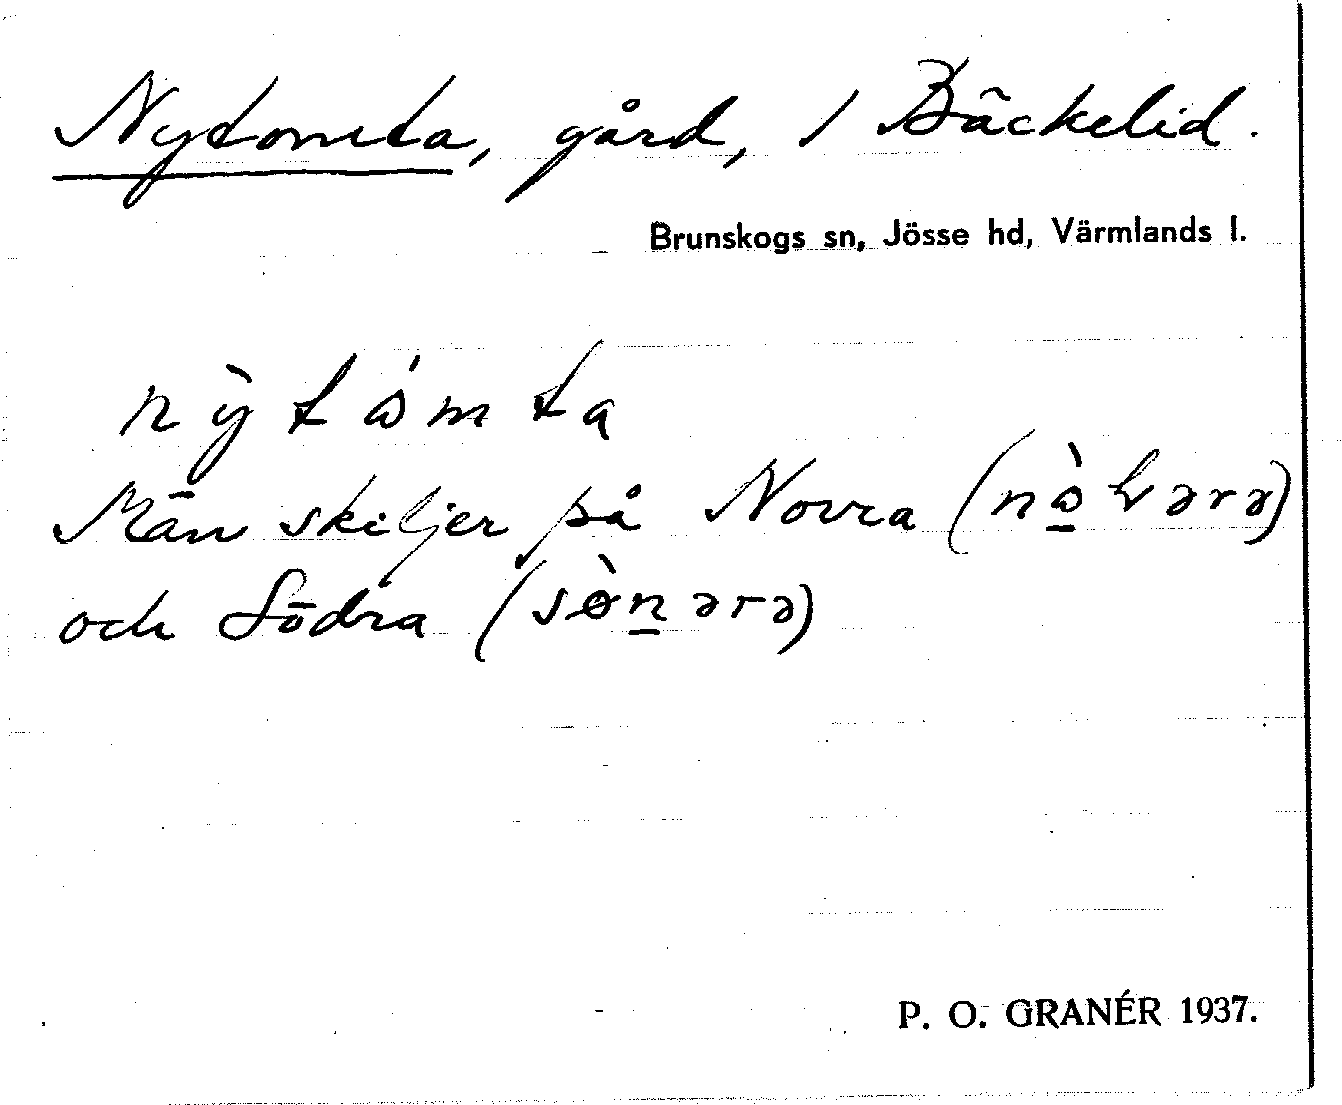 Nytomta, gård, / Bäckelid.
Brunskogs sn, Jösse hd, Värmlands l.
ny̌̀tómta
Man skiljer på Norra (nò̱ʋərə)
och Södra (sø̀ṉərə)
P. O. GRANÉR 1937.